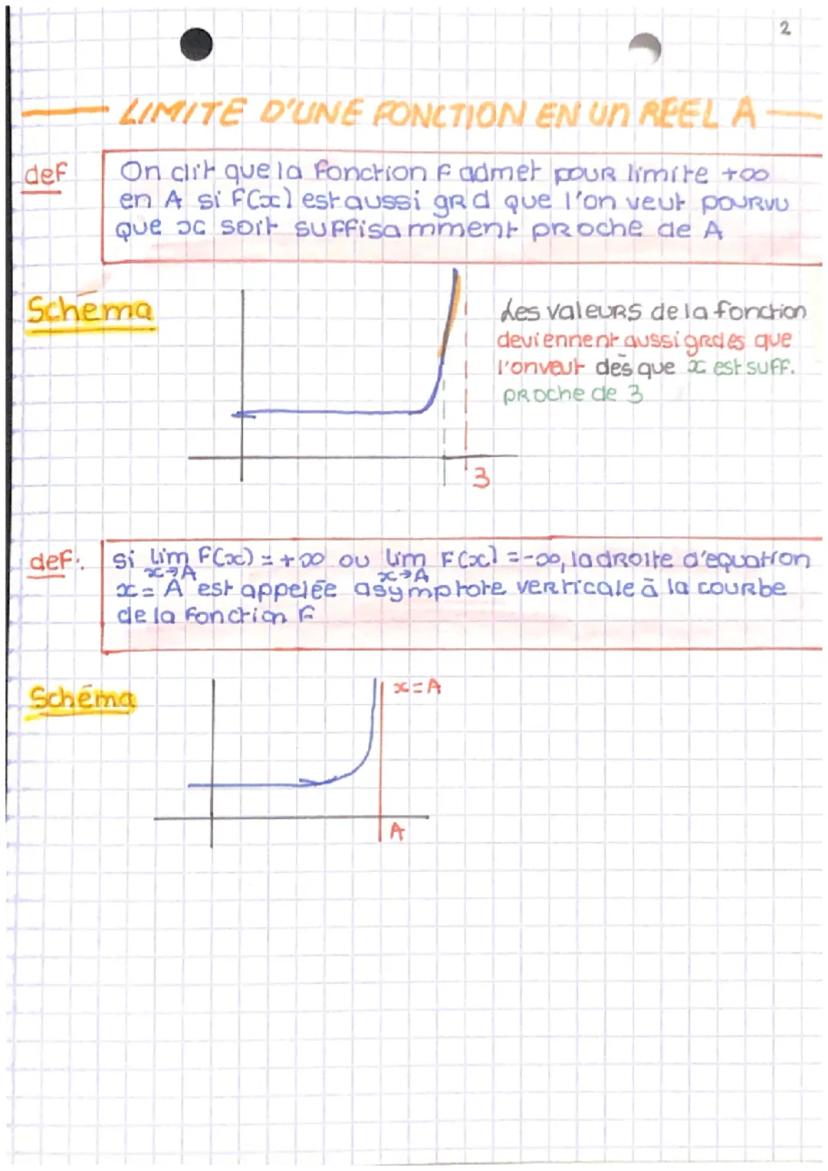 2
LIMITE D'UNE FONCTION EN UN RÉEL A
def
On dit que la fonction F admet pour limite +∞
en A si F(x) est aussi grd que l'on veut pourvu
que x soit suffisamment proche de A
Schéma
Les valeurs de la fonction
deviennent aussi grdes que
l'on veut dès que x est suff.
proche de 3
3
def:
si lim F(x) = +∞ ou lim F(x) = -∞, la droite d'equation
x→A x→A
x = A est appelée asymptote verticale à la courbe
de la fonction F
Schéma
x = A
A